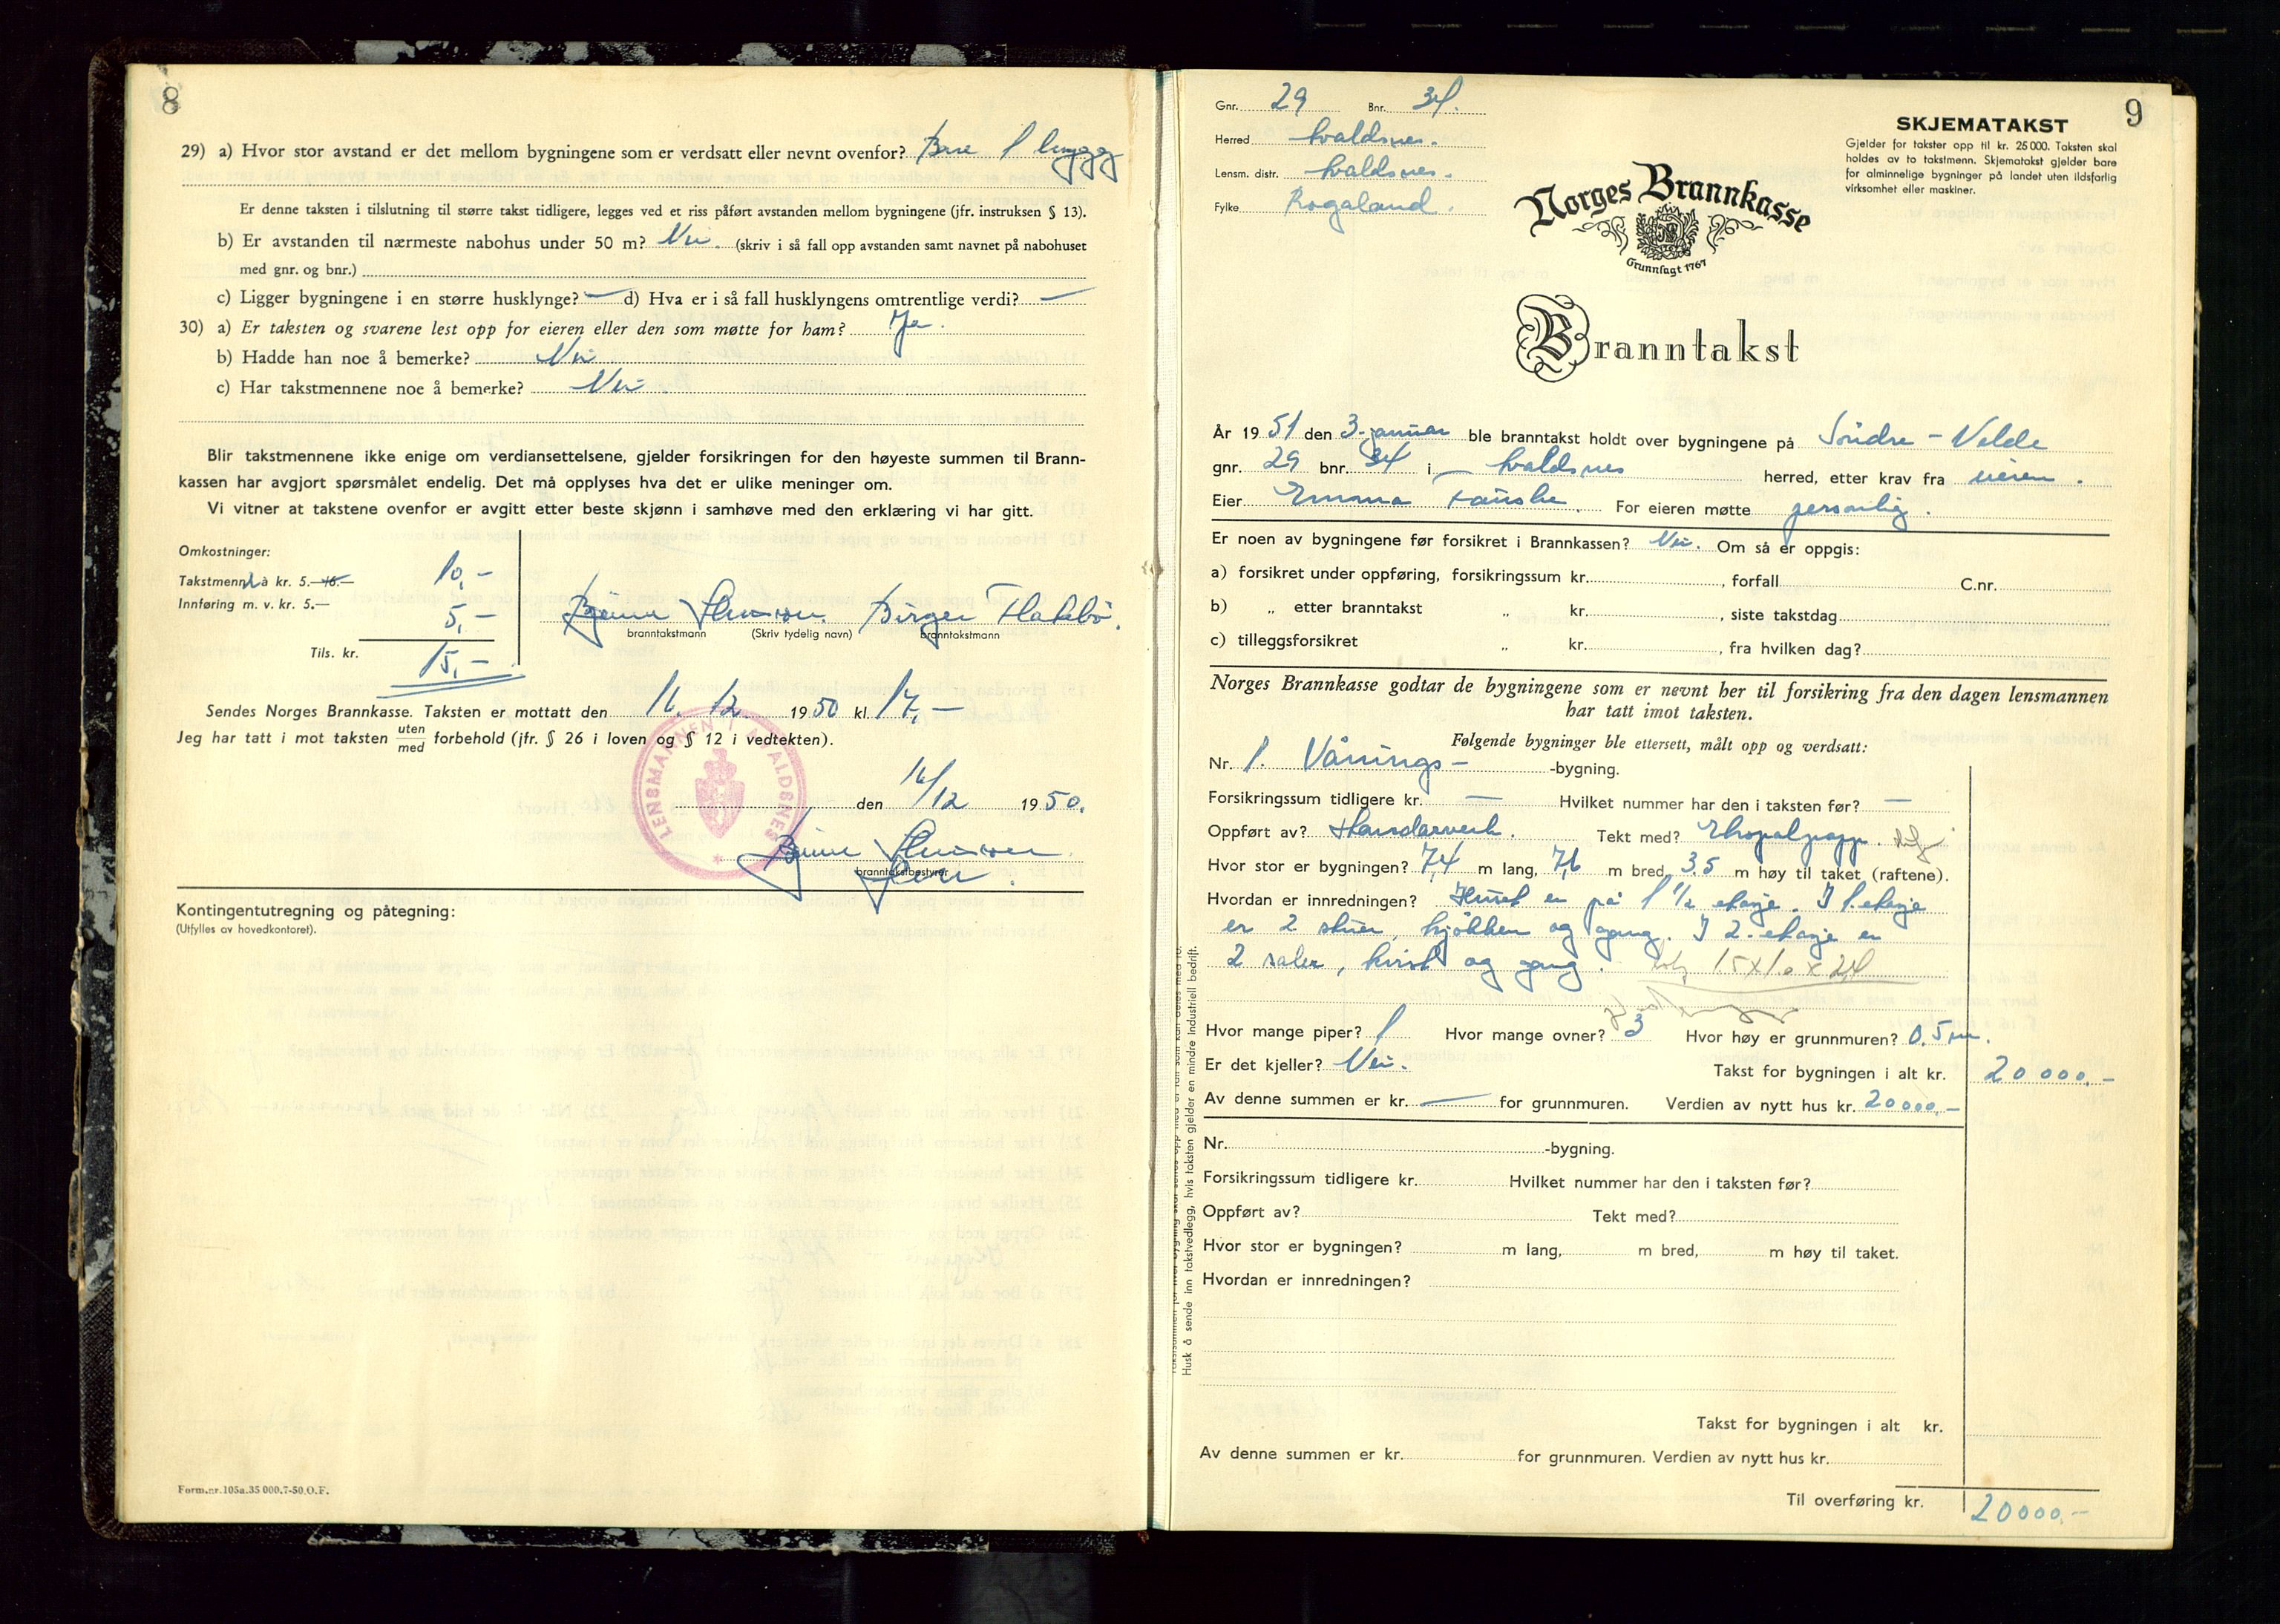 8
29) a) Hvor stor avstand er det mellom bygningene som er verdsatt eller nevnt ovenfor? Bare 1 bygg
Er denne taksten i tilslutning til større takst tidligere, legges ved et riss påført avstanden mellom bygningene (jfr. instruksen § 13).
b) Er avstanden til nærmeste nabohus under 50 m? Nei. (skriv i så fall opp avstanden samt navnet på nabohuset
med gnr. og bnr.)
c) Ligger bygningene i en større husklynge? — d) Hva er i så fall husklyngens omtrentlige verdi? —
30) a) Er taksten og svarene lest opp for eieren eller den som møtte for ham? Ja.
b) Hadde han noe å bemerke? Nei
c) Har takstmennene noe å bemerke? Nei
Blir takstmennene ikke enige om verdiansettelsene, gjelder forsikringen for den høyeste summen til Brann-
kassen har avgjort spørsmålet endelig. Det må opplyses hva det er ulike meninger om.
Vi vitner at takstene ovenfor er avgitt etter beste skjønn i samhøve med den erklæring vi har gitt.
Omkostninger:
Takstmenn à kr. 5.— 10.— 10,-
Innføring m. v. kr. 5.— 5,-
Birger
branntakstmann (Skriv tydelig navn) branntakstmann
Tils. kr. 15,-
Sendes Norges Brannkasse. Taksten er mottatt den 16. 12. 1950 kl. 17,-
Jeg har tatt i mot taksten uten/med forbehold (jfr. § 26 i loven og § 12 i vedtekten).
LENSMANNEN I AVALDSNES
den 16/12 1950.
branntakstbestyrer
Kontingentutregning og påtegning:
(Utfylles av hovedkontoret).
Form.nr.105a.35 000.7-50.O.F.
9
Gnr. 29 Bnr. 34.
Herred Avaldsnes.
Lensm. distr. Avaldsnes.
Fylke Rogaland.
SKJEMATAKST
Gjelder for takster opp til kr. 25 000. Taksten skal
holdes av to takstmenn. Skjematakst gjelder bare
for alminnelige bygninger på landet uten ildsfarlig
virksomhet eller maskiner.
Norges Brannkasse
Grunnlagt 1767
Branntakst
År 1951 den 3. januar ble branntakst holdt over bygningene på Søndre - Velde
gnr. 29 bnr. 34 i Avaldsnes herred, etter krav fra eieren.
Eier Emma For eieren møtte personlig.
Er noen av bygningene før forsikret i Brannkassen? Nei. Om så er oppgis:
a) forsikret under oppføring, forsikringssum kr. , forfall C.nr.
b) „ etter branntakst „ kr. , siste takstdag
c) tilleggsforsikret „ kr. , fra hvilken dag?
Norges Brannkasse godtar de bygningene som er nevnt her til forsikring fra den dagen lensmannen
har tatt imot taksten.
Følgende bygninger ble ettersett, målt opp og verdsatt:
Nr. 1. Vånings- -bygning.
Forsikringssum tidligere kr. — Hvilket nummer har den i taksten før? —
Oppført av? Tekt med?
Hvor stor er bygningen? 7,4 m lang, 7,6 m bred 3,5 m høy til taket (raftene).
Hvordan er innredningen? Huset er på 1 1/2 etasje. I 1. etasje
er 2 stuer, kjøkken og gang. I 2. etasje er
2 saler, kvist og gang. 1.5 x 1.0 x 2,4
Hvor mange piper? 1 Hvor mange ovner? 3 Hvor høy er grunnmuren? 0.5 m.
Er det kjeller? Nei. Takst for bygningen i alt kr. 20000.-
Av denne summen er kr. — for grunnmuren. Verdien av nytt hus kr. 20000.-
Nr. -bygning.
Forsikringssum tidligere kr. Hvilket nummer har den i taksten før?
Oppført av? Tekt med?
Hvor stor er bygningen? m lang, m bred, m høy til taket.
Hvordan er innredningen?
Takst for bygningen i alt kr.
Av denne summen er kr. for grunnmuren. Verdien av nytt hus kr.
Til overføring kr. 20000.-
Husk å sende inn takstvedlegg, hvis taksten gjelder en mindre industriell bedrift.